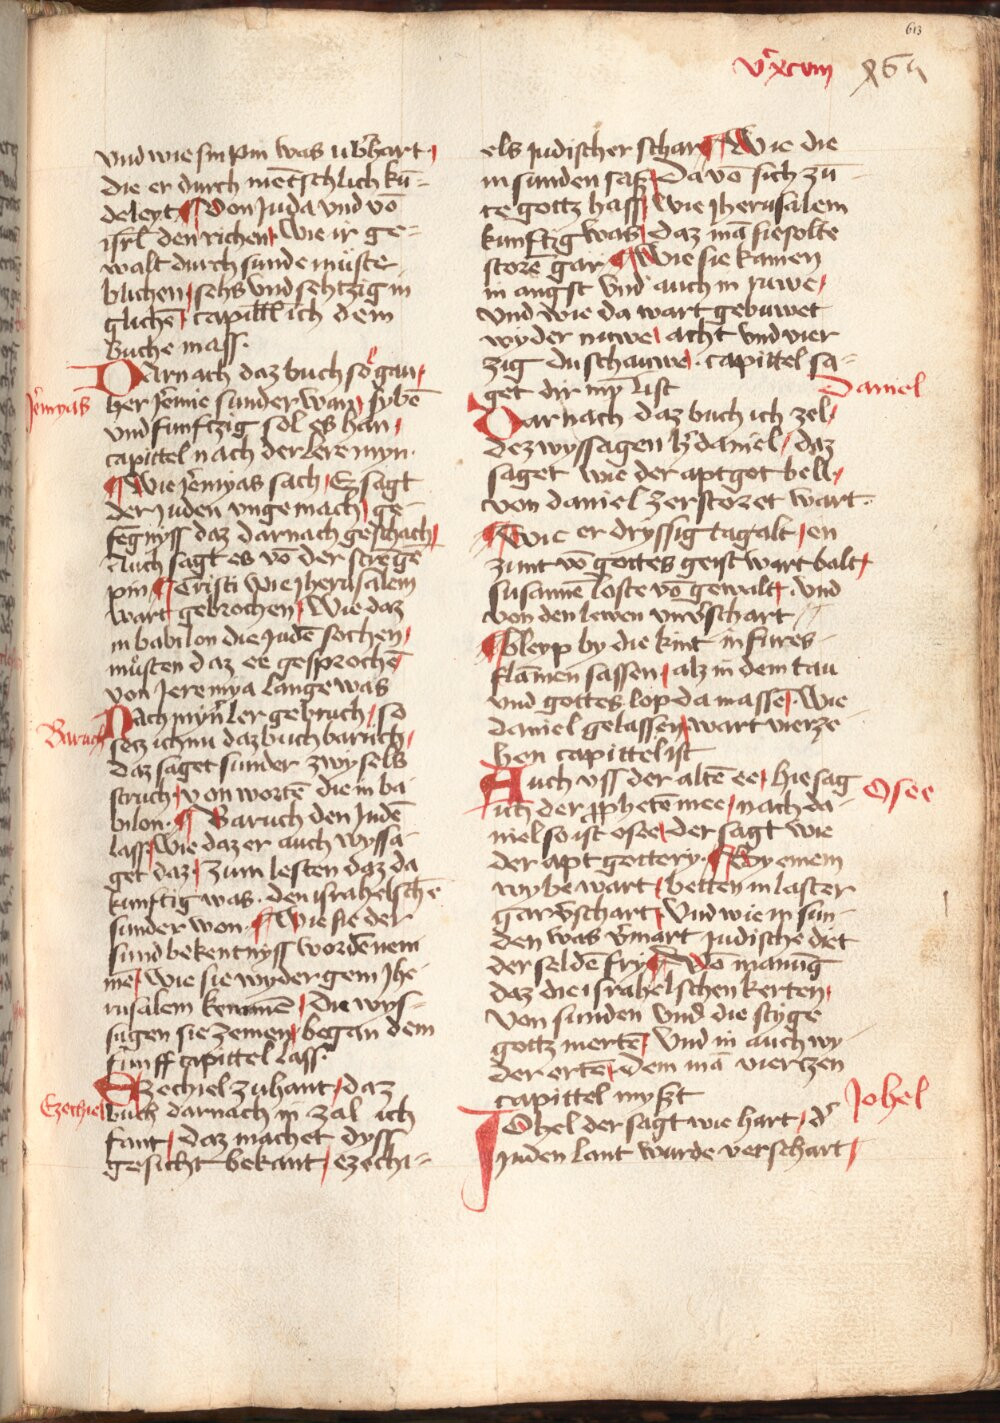 613
vᶜxcvııı 865
vnd wie sin pin was vb'hart
die er durch mētschlich kū=
deleyt ¶ Von Juda vnd vō
isr̄l den richen Wie ir ge=
walt durch sunde müste
blichen sehs vnd sehtzig in
glichē capittel ich dem
buche mass.
Darnach daz buch so gan
Jēmyas
her Jēmie sunder wan sybē
vnd funftzig sol es han
capittel nach der lere myn.
¶ Wie Jēmyas sach Er sagt
der Juden vngemach ge=
fēgnyss daz darnach geschach
Auch sagt es vō der strēge
pin ¶ Cristi wie Jherusalem
wart gebrochen Wie daz
in babilon die Judē sochen
müsten daz ee gesprochē
von Jeremya lange was
Nach myn' ler gebruch so
Baruch
setz ich nu daz buch baruch
daz saget sunder zwyfels
struch von wortē die in ba
bilon. ¶ Baruch den Judē
lass Wie daz er auch wyssa
get daz zum lesten daz da
kunftig was. den israhelschē
sunder won. ¶ Wie sie der
sund bekentnyss wordē nem
mē Wie sie wyder gem Jhe=
rusalem kemmē die wys=
sagen sie zemen began dem
funff capittel lass.
Ezechiel zu hant daz
Ezechiel
buch darnach in zal ich
fant daz machet dyss
gesicht bekant ezechi=
els Judischer schar ¶ Wie die
in sunden sass Da vō sich zū=
te gottz hass Wie Jherusalem
kunftig was daz mā sie solte
storē gar ¶ Wie sie kamen
in angst vnd auch in ruwe
vnd wie da wart gebuwet
wyder nuwe acht vnd vier
zig du schauwe. capittel sa=
get dir myn list
Daniel
Darnach daz buch ich zel
dez wyssagen h' daniel daz
saget wie der aptgot bell
von daniel zerstoret wart.
¶ Wie er dryssig tag alt en
zunt vō gottes geist wart balt
susannē loste vō gewalt. vnd
von den lewen vnv'schart
¶ Bleyp by die kint in fures
flāmen sassen alz in dem tau
vnd gottes lop da massē. Wie
daniel gelassen wart vierze=
hen capittel ist
Auch vss der altē ee hie sag
Osee
ich der p̄phetē mee nach da=
niel so ist osee der sagt wie
der apt gottery. ¶ By einem
wybe wart betten in laster
gar v'schart Vnd wie in sun=
den was v'nart Judische diet
der seldē fry ¶ Vō manūg
daz die israhelschen kerten
von sunden vnd die styge
gottz mertē Vnd in auch wy=
der ertē dem mā viertzen
capittel myszt
Johel
Johel der sagt wie hart d'
Juden lant wurde verschart